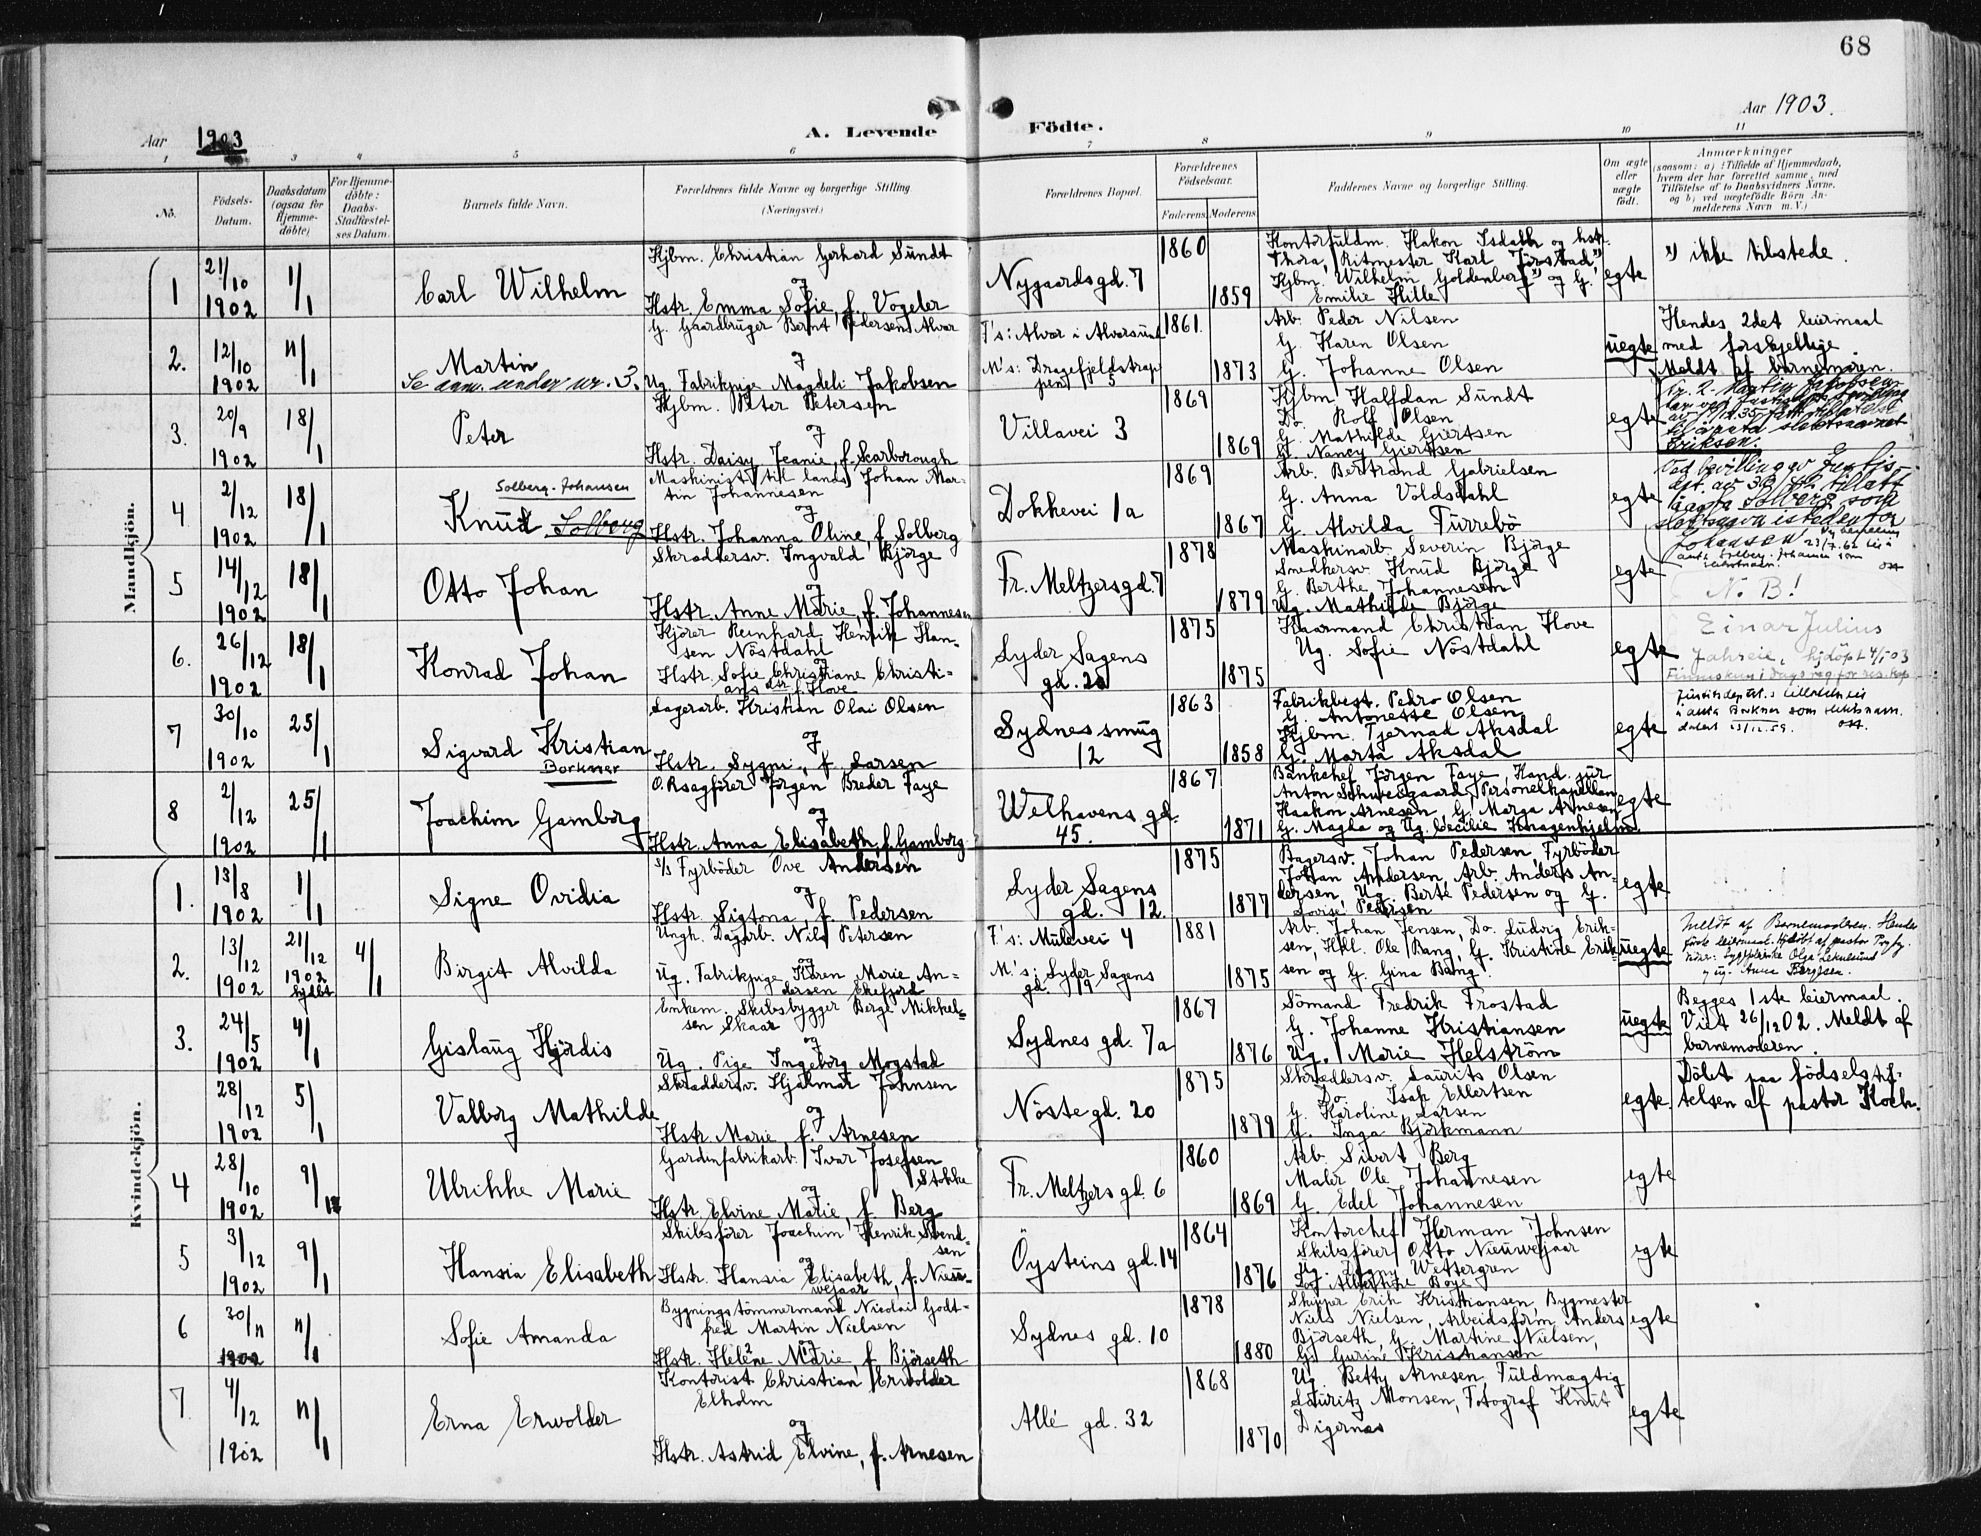 68
Aar 1903
A. Levende Födte.
Aar 1903.
1 3 4 5 6 7 8 9 10 11
No.
Födsels-Datum.
Daabsdatum (ogsaa for Hjemme-döbte)
For Hjemme-döbte: Daabs-Stadfæstel-ses Datum.
Barnets fulde Navn.
Forældrenes fulde Navne og borgerlige Stilling.
(Næringsvei.)
Forældrenes Bopæl.
Forældrenes Födselsaar.
Faderens Moderens
Faddernes Navne og borgerlige Stilling.
Om ægte eller uægte födt.
Anmærkninger
(saasom: a) i Tilfælde af Hjemmedaab, hvem der har forrettet samme, med Tilföielse af to Daabsvidners Navne, og b) ved uægtefödte Börn An-melderens Navn m. V.)
Mandkjön.
1 21/10 1902 1/1 Carl Wilhelm
Kjbm. Christian Gerhard Sundt
og
Hstr. Emma Sofie, f. Vogeler
Nygaardsgd. 7
1860 1859
Kontorfuldm. Hakon Isdahl og hstr.
Thora, Ritmester Karl
Kjbm. Wilhelm Goldenberg x) og G.
Emilie Hille
egte
x) ikke tilstede.
2. 12/10 1902 11/1 Martin
Se anm. under nr. 3.
G. Gaardbruger Bernt Pedersen Alvar
og
Ug. Fabrikpige Magdeli Jakobsen
F's: Alvar i Alversund
M's: Dragefjeldstrap-pen 5
1861. 1873
Arb. Peder Nilsen
G. Karen Olsen
G. Johanne Olsen
uegte
Hendes 2det leiermaal
med forskjellige.
Meldt af barnemoren.
3. 20/9 1902 18/1 Peter
Kjbm. Peter Petersen
og
Hstr. Daisy Jeanie, f. Scarborough
Villavei 3
1869 1869
Kjbm. Halfdan Sundt
Do. Rolf Olsen
G. Mathilde Giertsen
G. Nancy Giertsen
egte
Nr. 2. Martin Jakobsen
Eriksen.
4 2/12 1902 18/1
Solberg-Johansen
Knut Solberg
Maskinist til lands Johan Mar-
tin Johannesen
og
Hstr. Johanna Oline, f. Solberg
Dokkevei 1a
1869 1867
Arb. Bertrand Gabrielsen
G. Anna Voldsdahl
G. Alvilda Furrebö
egte
Ved bevilling av Justis
Solberg som
slektsnavn istedenfor
Johansen
5 14/12 1902 18/1 Otto Johan
Skraddersv. Ingvald Björge
og
Hstr. Anne Marie, f. Johannesen
Fr. Meltzersgd. 7
1878 1879
Maskinarb. Severin Björge
Snedkersv. Knud Björge
G. Berthe Johannesen
Ug. Mathilde Björge
egte
N. B!
Einar Julius
6. 26/12 1902 18/1 Konrad Johan
Kjörer Reinhard Henrik Han-
sen Nöstdahl
og
Hstr. Sofie Christiane Christi-
ansdtr. f. Hove
Lyder Sagens
gd. 20
1875 1875
Haarmand Christian Hove
Ug. Sofie Nöstdahl
egte
7 30/10 1902 25/1 Sigvard Kristian
Borkner
Lagerarb. Kristian Olai Olsen
og
Hstr. Sygni, f. Larsen
Sydnessmug
12
1863 1858
Fabrikbest. Pedro Olsen
G. Antonette Olsen
Kjbm. Tjernad Aksdal
G. Marta Aksdal
egte
å anta Borkner som slektsnavn.
8 2/12 1902 25/1 Joachim Gamborg
O.Rsagförer Jörgen Breder Faye
og
Hstr. Anna Elisabeth, f. Gamborg
Welhavens gd.
45.
1867 1871
Bankchef Jörgen Faye, Hand. jur
Anton Schweegaard, Personelkapellan
Haakon Arnesen, G. Marga Arnesen
G. Magda og Ug. Cecilie Knagenhjelm
egte
Kvindekjön.
1. 13/8 1902 1/1 Signe Ovidia
S/s Fyrböder Ove Andersen
og
Hstr. Sigtona, f. Pedersen
Lyder Sagens
gd. 12.
1875 1877
Bagersv. Johan Pedersen, Fyrböder
Johan Andersen, Arb. Anders An-
dersen, Ug. Berte Pedersen og G.
Lovise Pedersen
egte
2. 13/12 1902 21/12 1902 hjdbt 4/1 Birgit Alvilda
Ungk. Dagarb. Nils Petersen
og
Ug. Fabrikpige Karen Marie An-
dersen Ekefjord
F.'s: Mulevei 4
M.'s: Lyder Sagens
gd. 19
1881 1875
Arb. Johan Jensen, Do. Ludvig Erik-
sen, Hdl. Ole Bang, G. Kristine Erik-
sen og G. Gina Bang.
uegte
Meldt af Barnemoderen. Hendes
3. 24/5 1902 4/1 Gislaug Hjördis
Enkem. Skibsbygger Berge Mikkel-
sen Skaar
og
Ug. Pige Ingeborg Mogstad
Sydnes gd. 7a
1867 1876
Sömand Fredrik Frostad
G. Johanne Kristiansen
Ug. Marie Helström
uegte
Begges 1ste leiermaal.
Viet 26/12 02. Meldt af
barnemoderen.
28/12 1902 5/1 Valborg Mathilde
Skraddersv. Hjalmar Johnsen
og
Hstr. Marie, f. Arnesen
Nöstegd. 20
1875 1879
Skraddersv. Laurits Olsen
Do. Isak Ellertsen
G. Karoline Larsen
G. Inga Björkmann
egte.
Döbt paa födselstif-
telsen af pastor Koch.
4 28/10 1902 9/1 Ulrikke Marie
Gardinfabrikarb. Ivar Josefsen
Stokke
og
Hstr. Elvine Marie, f. Berg
Fr. Meltzers gd. 6
1860 1869
Arb. Sivert Berg
Maler Ole Johannesen
G. Edel Johannesen
egte
5 3/12 1902 9/1 Hansia Elisabeth
Skibsförer Joachim Henrik Svend-
sen
og
Hstr. Hansia Elisabeth, f. Nieu-
wejaar
Öysteins gd. 14
1864 1876
Kontorchef Herman Johnsen
Skibsförer Otto Nieuwejaar
Ug. Dagny Wettergren
egte
6 30/11 1902 11/1 Sofie Amanda
Bygningstömmermand Nicolai Godt-
fred Martin Nielsen
og
Hstr. Helene Marie, f. Björseth
Sydnes gd. 10
1878 1880
Skipper Erik Kristiansen, Bygmester
Niels Nielsen, Arbeidsform. Anders
Björseth, G. Martine Nielsen,
G. Gurine Kristiansen
egte
7. 4/12 1902 11/1 Erna Erwolder
Kontorist Christian Erwolder
Elholm
og
Hstr. Astrid Elvine, f. Arnesen
Allé gd. 32
1868 1870
Ug. Betty Arnesen, Fuldmægtig
Lauritz Monsen, Fotograf Knut
Digernes
egte